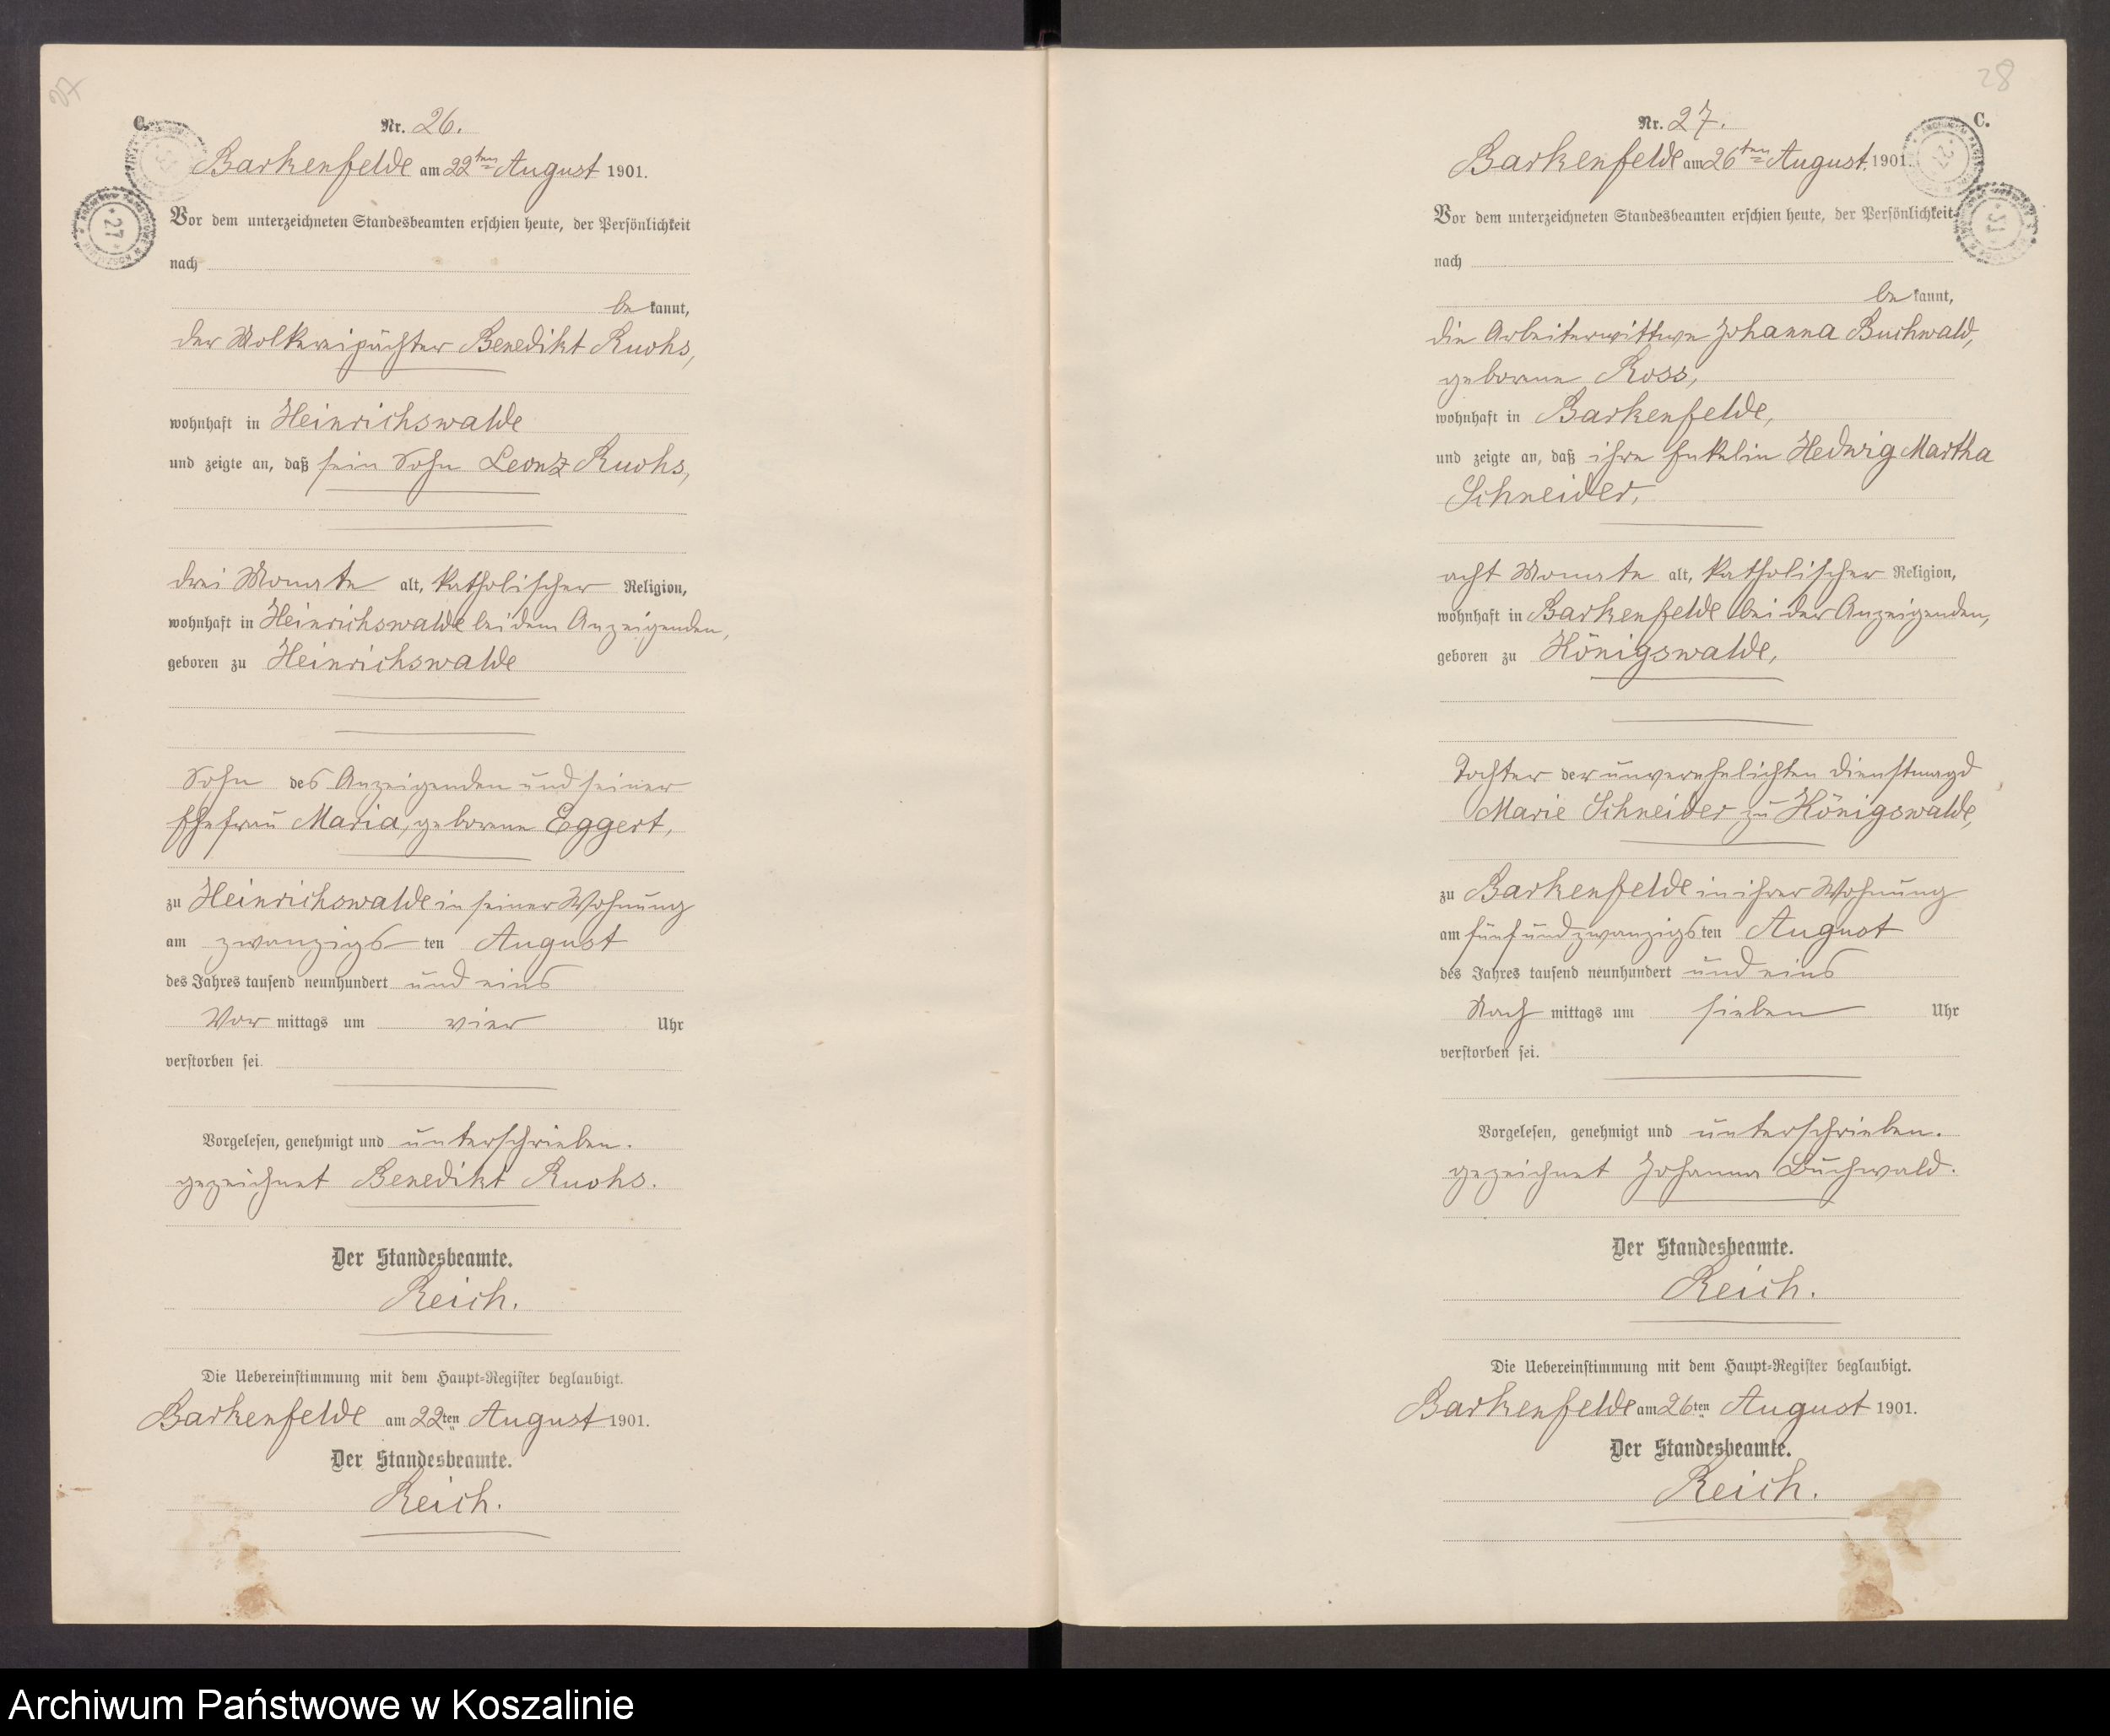 27
C.
Nr. 26.
Barkenfelde am 22ten August 1901.
Vor dem unterzeichneten Standesbeamten erschien heute, der Persönlichkeit
nach
be kannt,
der Molkereipächter Benedikt Ruohs,
wohnhaft in Heinrichswalde
und zeigte an, daß sein Sohn Leonz Ruohs,
drei Monate alt, katholischer Religion,
wohnhaft in Heinrichswalde bei dem Anzeigenden,
geboren zu Heinrichswalde
Sohn des Anzeigenden und seiner
Ehefrau Maria, geborene Eggert,
zu Heinrichswalde in seiner Wohnung
am zwanzigs ten August
des Jahres tausend neunhundert und eins
Vor mittags um vier Uhr
verstorben sei.
Vorgelesen, genehmigt und unterschrieben.
gezeichnet Benedikt Ruohs.
Der Standesbeamte.
Reich.
Die Uebereinstimmung mit dem Haupt-Register beglaubigt.
Barkenfelde am 22ten August 1901.
Der Standesbeamte.
Reich.
28
C.
Nr. 27.
Barkenfelde am 26ten August 1901.
Vor dem unterzeichneten Standesbeamten erschien heute, der Persönlichkeit
nach
be kannt,
die Arbeiterwittwe Johanna Buchwald,
geborene Ross,
wohnhaft in Barkenfelde,
und zeigte an, daß ihre Enkelin Hedwig Martha
Schneider,
acht Monate alt, katholischer Religion,
wohnhaft in Barkenfelde bei der Anzeigenden,
geboren zu Königswalde,
Tochter der unverehelichten Dienstmagd
Marie Schneider zu Königswalde,
zu Barkenfelde in ihrer Wohnung
am fünfundzwanzigs ten August
des Jahres tausend neunhundert und eins
Nach mittags um sieben Uhr
verstorben sei.
Vorgelesen, genehmigt und unterschrieben.
gezeichnet Johanna Buchwald.
Der Standesbeamte.
Reich.
Die Uebereinstimmung mit dem Haupt-Register beglaubigt.
Barkenfelde am 26ten August 1901.
Der Standesbeamte.
Reich.
Archiwum Państwowe w Koszalinie